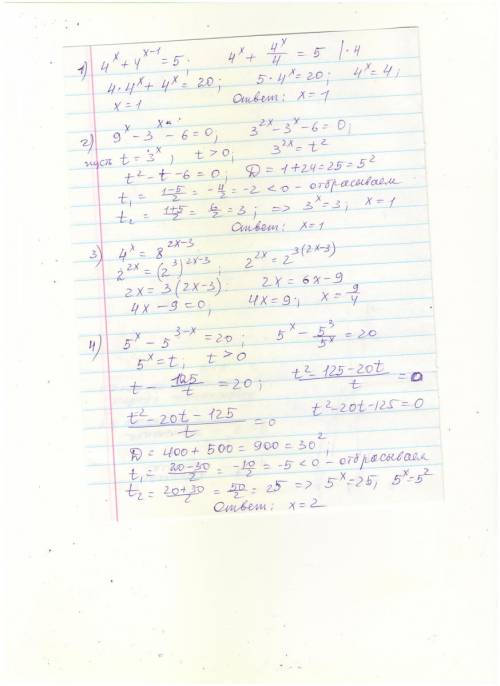 1) 4^x + 4^(x-1) = 5; 4^x + 4^x/4 = 5 | · 4
4 · 4^x + 4^x = 20; 5 · 4^x = 20; 4^x = 4;
x = 1 Ответ: x = 1
2) 9^x - 3^x - 6 = 0, 3^(2x) - 3^x - 6 = 0;
пусть t = 3^x, t > 0; 3^(2x) = t^2
t^2 - t - 6 = 0; D = 1 + 24 = 25 = 5^2
t₁ = (1-5)/2 = -4/2 = -2 < 0 - отбрасываем
t₂ = (1+5)/2 = 6/2 = 3; => 3^x = 3, x = 1
Ответ: x = 1
3) 4^x = 8^(2x-3)
2^(2x) = (2^3)^(2x-3); 2^(2x) = 2^(3(2x-3))
2x = 3(2x-3) 2x = 6x - 9
4x - 9 = 0, 4x = 9; x = 9/4
4) 5^x - 5^(3-x) = 20; 5^x - 5^3/5^x = 20
5^x = t; t > 0
t - 125/t = 20; (t^2 - 125 - 20t)/t = 0
(t^2 - 20t - 125)/t = 0 t^2 - 20t - 125 = 0
D = 400 + 500 = 900 = 30^2;
t₁ = (20-30)/2 = -10/2 = -5 < 0 - отбрасываем
t₂ = (20+30)/2 = 50/2 = 25 => 5^x = 25, 5^x = 5^2
Ответ: x = 2